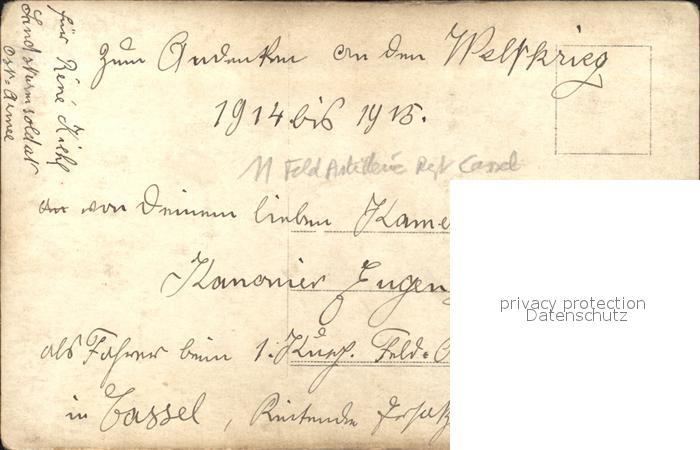 für René Kiehl
Landsturmsoldat
Ost-Armee
zum Andenken an den Weltkrieg
1914 bis 1915.
11 Feld Artillerie Regt Cassel
von Deinem lieben Kame
Kanonier Eugen
als Fahrer beim 1. Feld-
in Cassel, Reitende Ersatz
privacy protection
Datenschutz